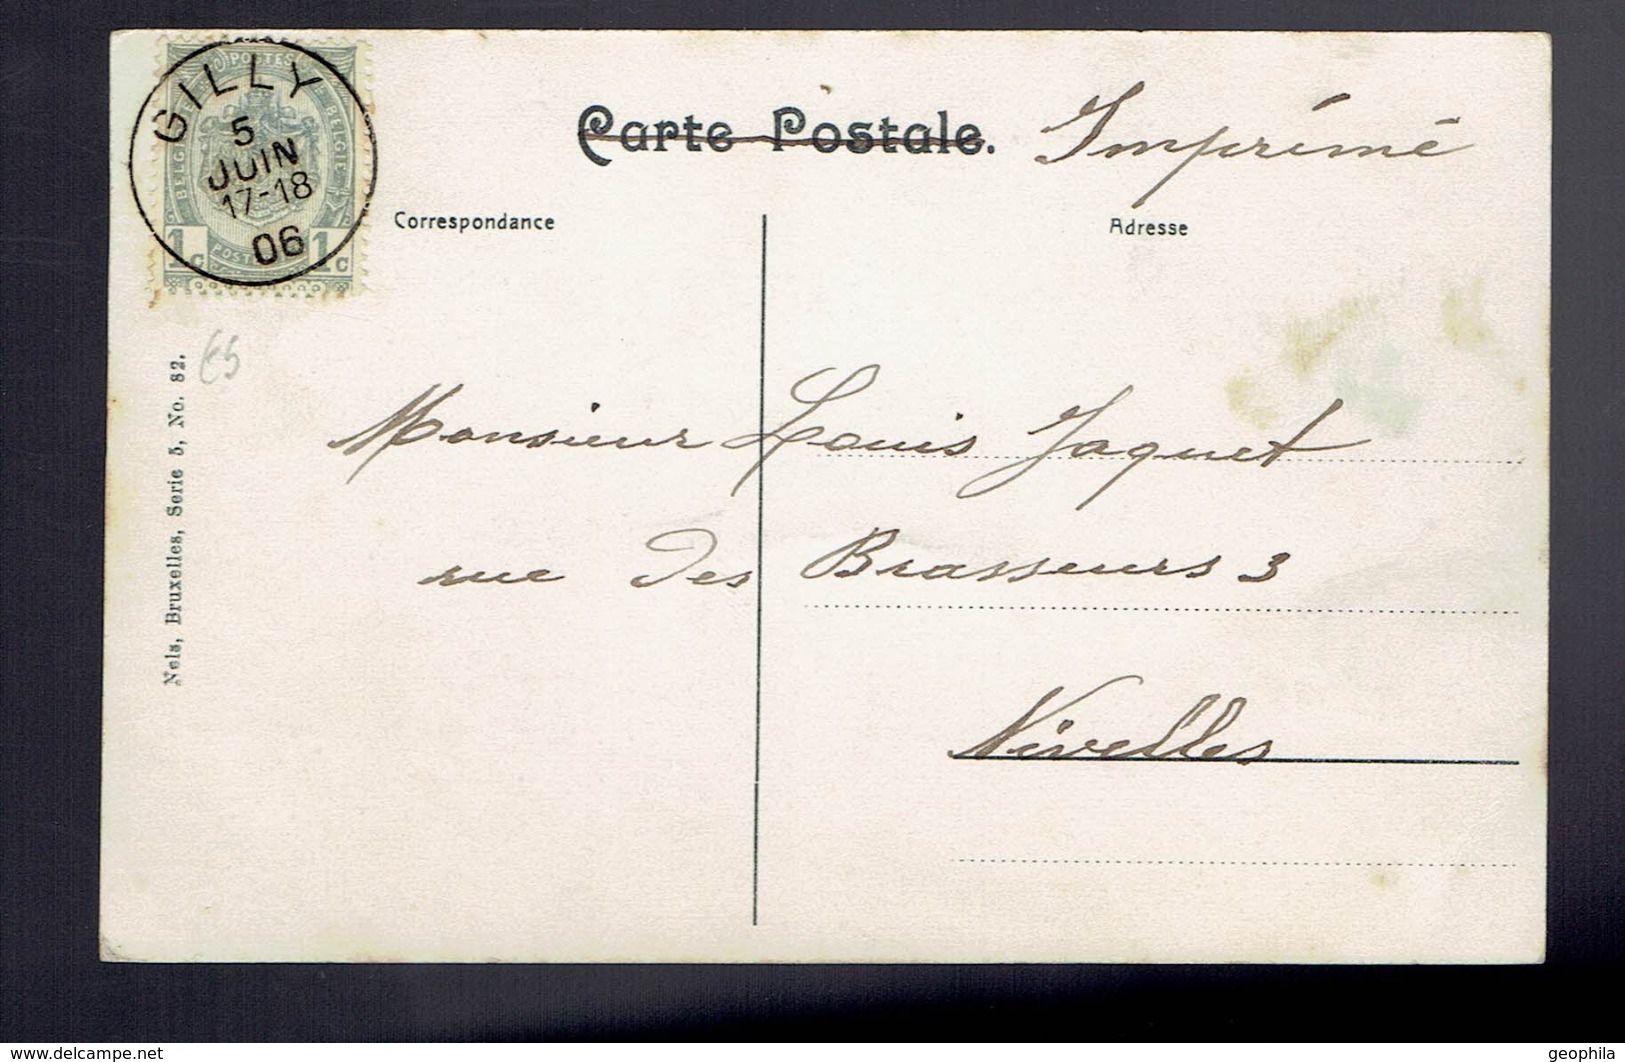 GILLY
5
JUIN
17-18
06
POSTES
BELGIE
1 C POST 1 C
Carte Postale. Imprimé
Correspondance
Adresse
Nels, Bruxelles, Serie 5, No. 82.
€5
Monsieur Louis Jaquet
rue des Brasseurs 3
Nivelles
www.delcampe.net
geophila